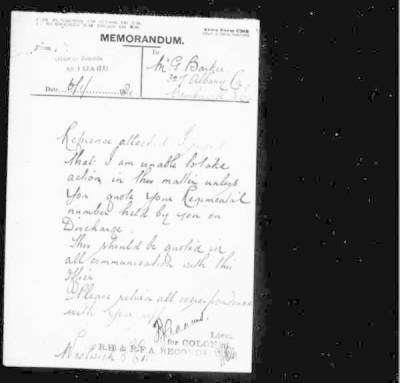 Army Form C348
MEMORANDUM.
From
To
Mr G Barker
Albany
Date
Reference attached I regret
that I am unable to take
action in this matter unless
You quote your Regimental
number held by you on
Discharge.
This should be quoted in
all communication with this
Office
Please return all correspondence
with your
for COLONEL
R.H. & R.F.A. RECORDS.
Woolwich S.E.